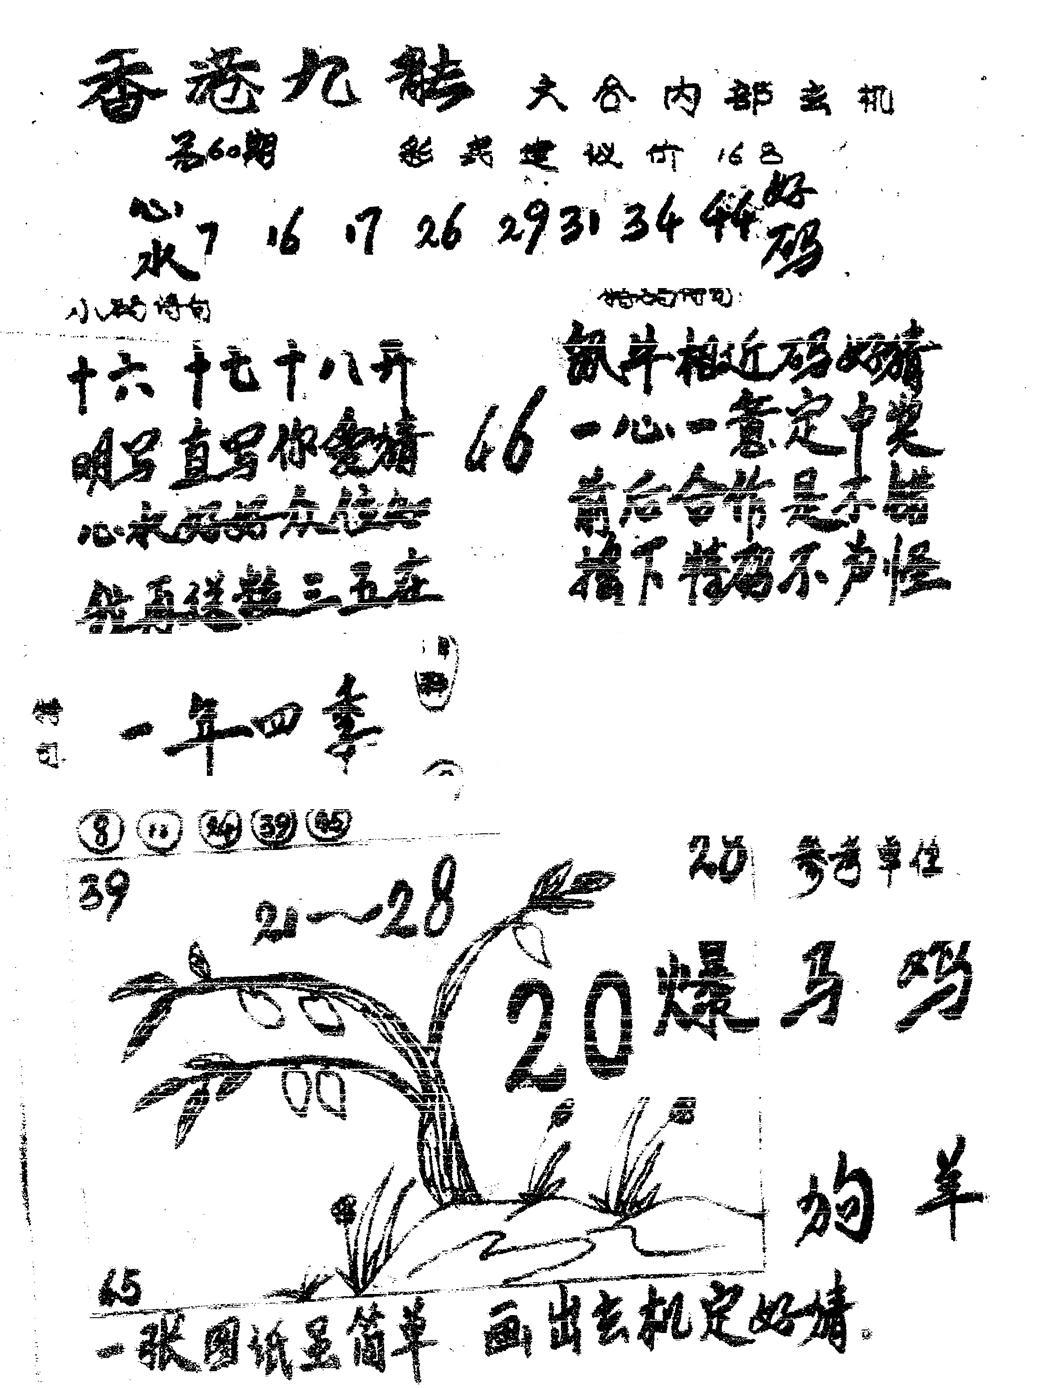 香港九龍 六合内部玄机
第60期 彩民建议价 168
心水 7 16 17 26 29 31 34 44 好码
小码诗句
十六十七十八开
明写直写你爱猜
心水好好众位
再送数三五在
46
鼠牛相近码好猜
一心一意定中奖
前后合作是不错
接下特码不声怪
一年四季
8 24 39 45
39
21～28
20 参考单位
20 爆 马 鸡
狗 羊
45
一张图纸呈简单 画出玄机定好猜。